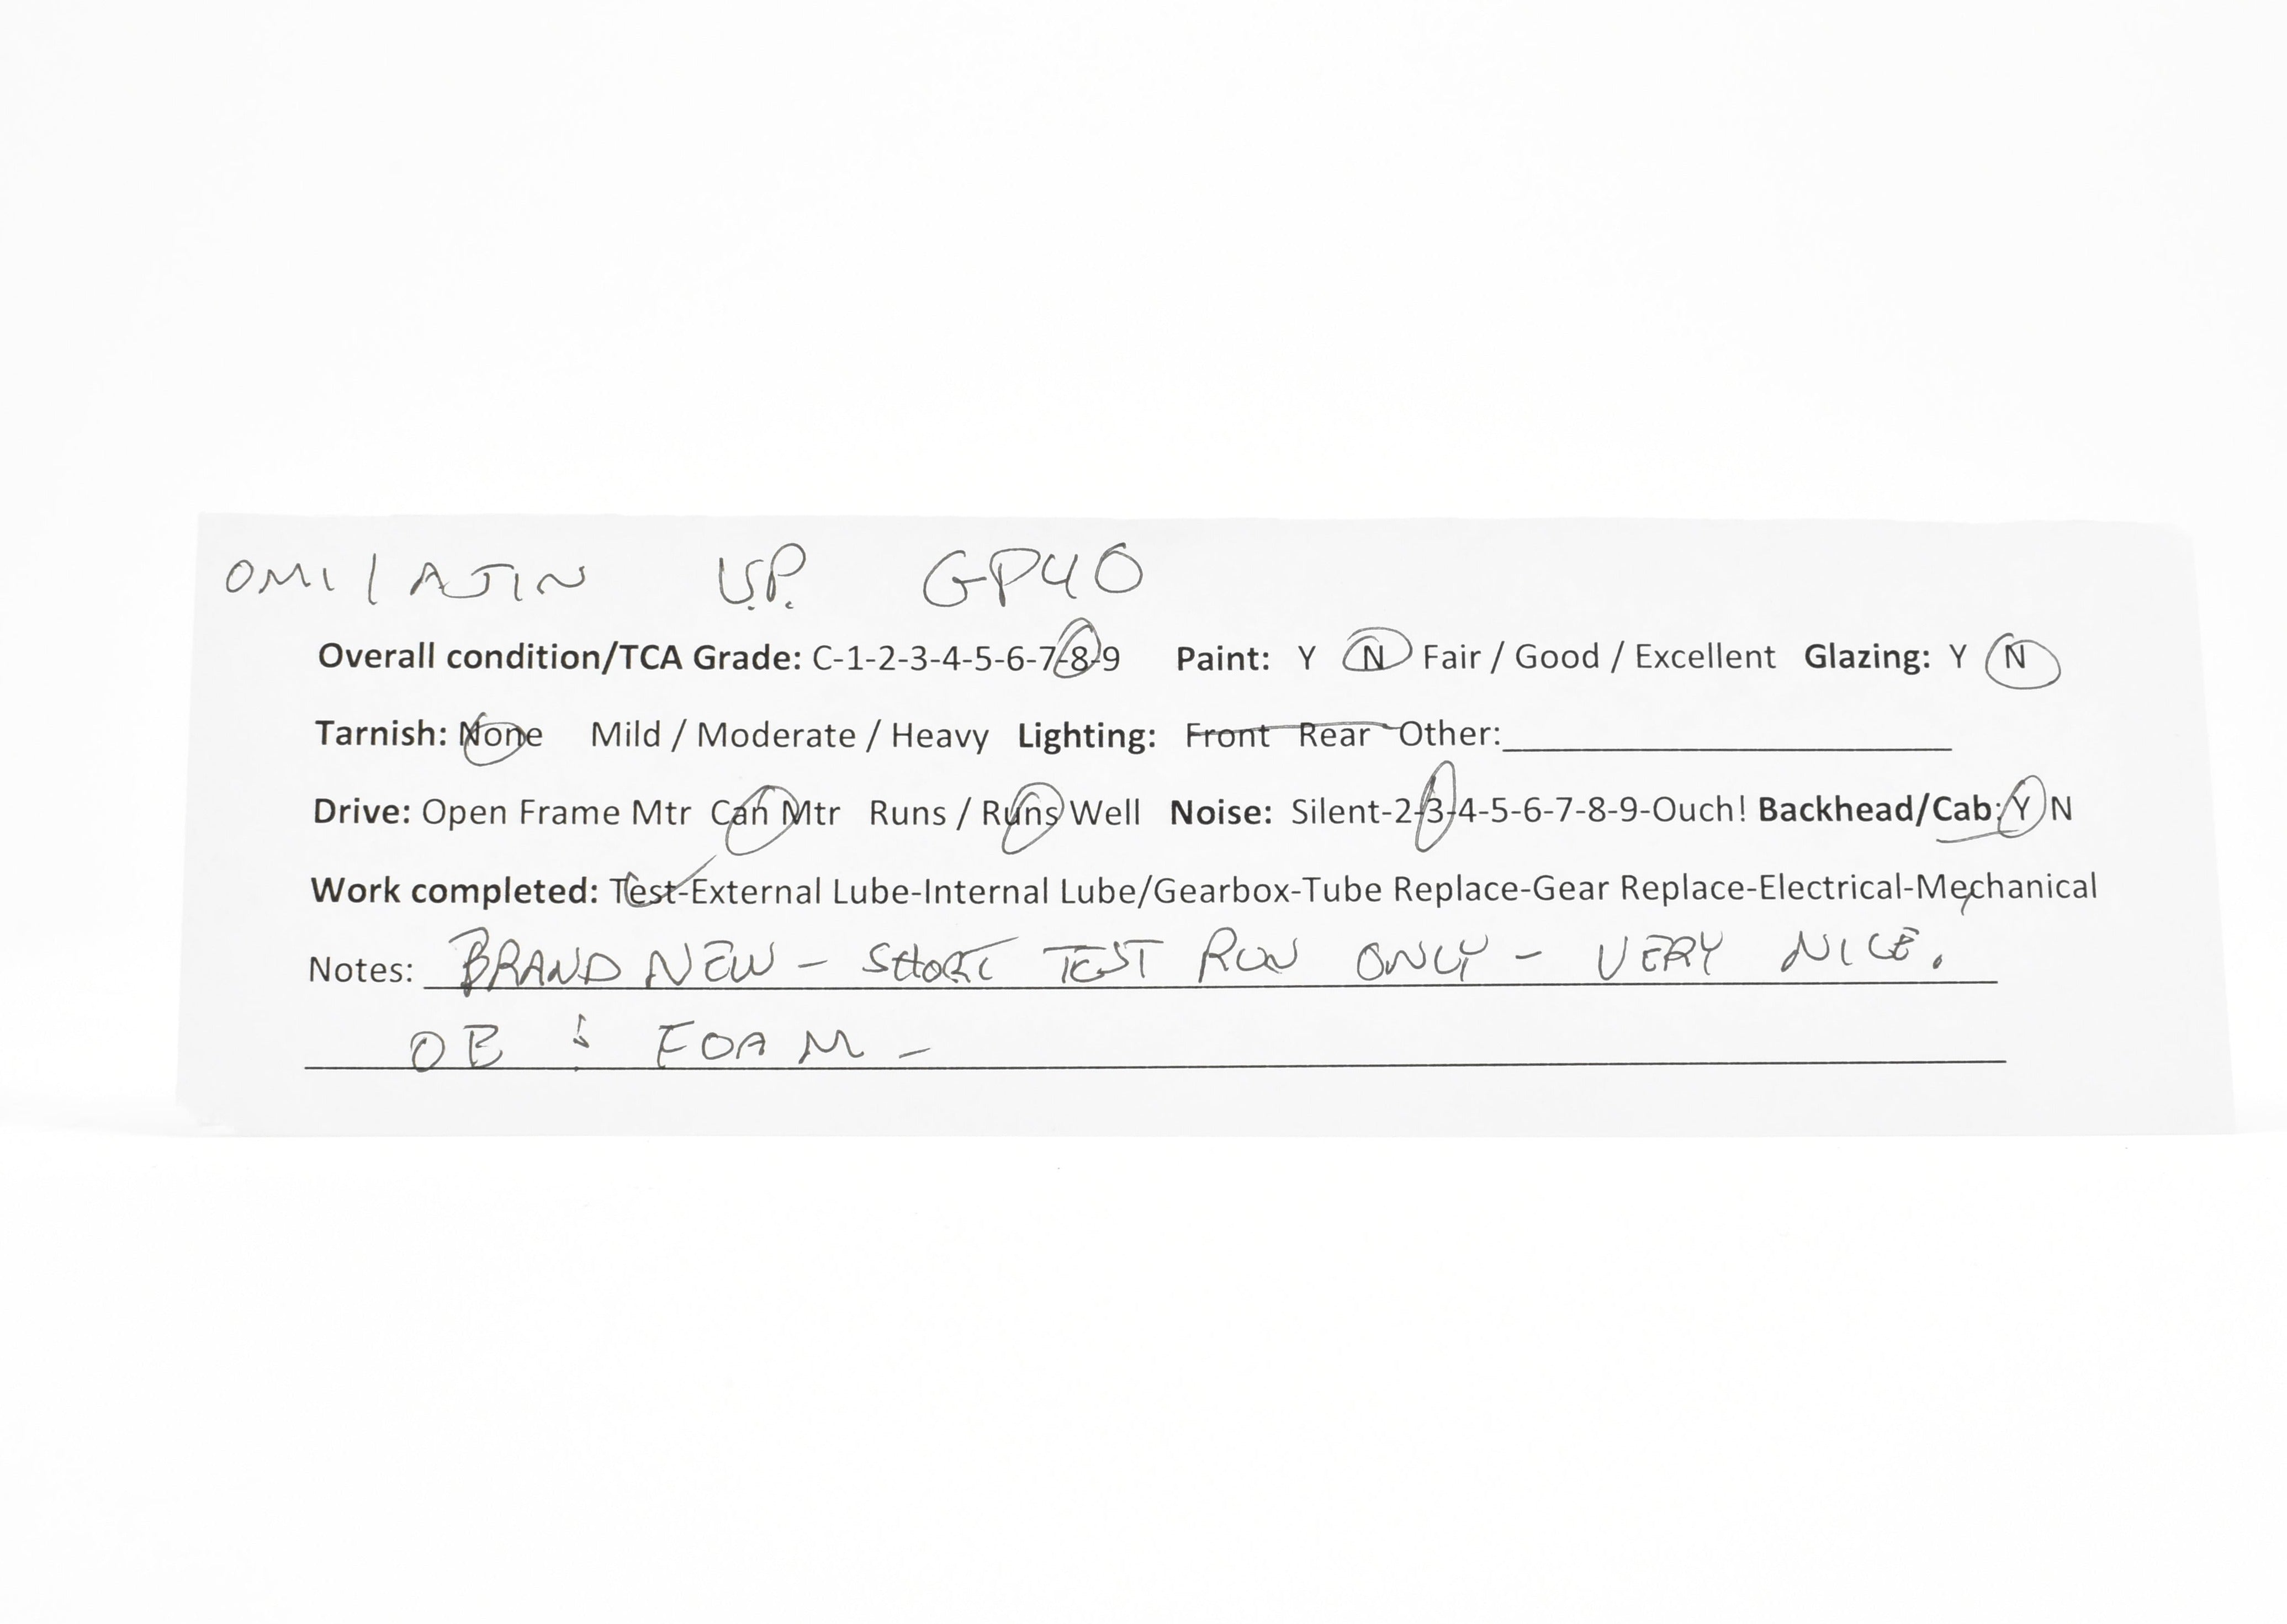 OMI / AJIN U.P. GP40
Overall condition/TCA Grade: C-1-2-3-4-5-6-7-8-9 Paint: Y N Fair / Good / Excellent Glazing: Y N
Tarnish: None Mild / Moderate / Heavy Lighting: Front Rear Other:
Drive: Open Frame Mtr Can Mtr Runs / Runs Well Noise: Silent-2-3-4-5-6-7-8-9-Ouch! Backhead/Cab: Y N
Work completed: Test-External Lube-Internal Lube/Gearbox-Tube Replace-Gear Replace-Electrical-Mechanical
Notes: BRAND NEW - SHORT TEST RUN ONLY - VERY NICE.
OB & FOAM -